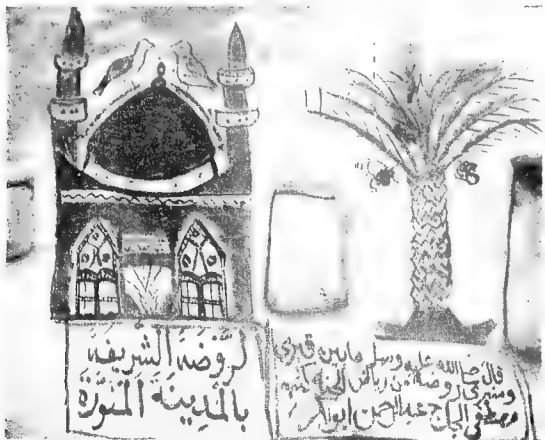 لرَّوضة الشريفة
بالمدينة المنورة
قال صلى الله عليه وسلم ما بين قبري
ومنبري روضة من رياض الجنة كتبه
مصطفى الحاج عبد الرحمن أبو بكر